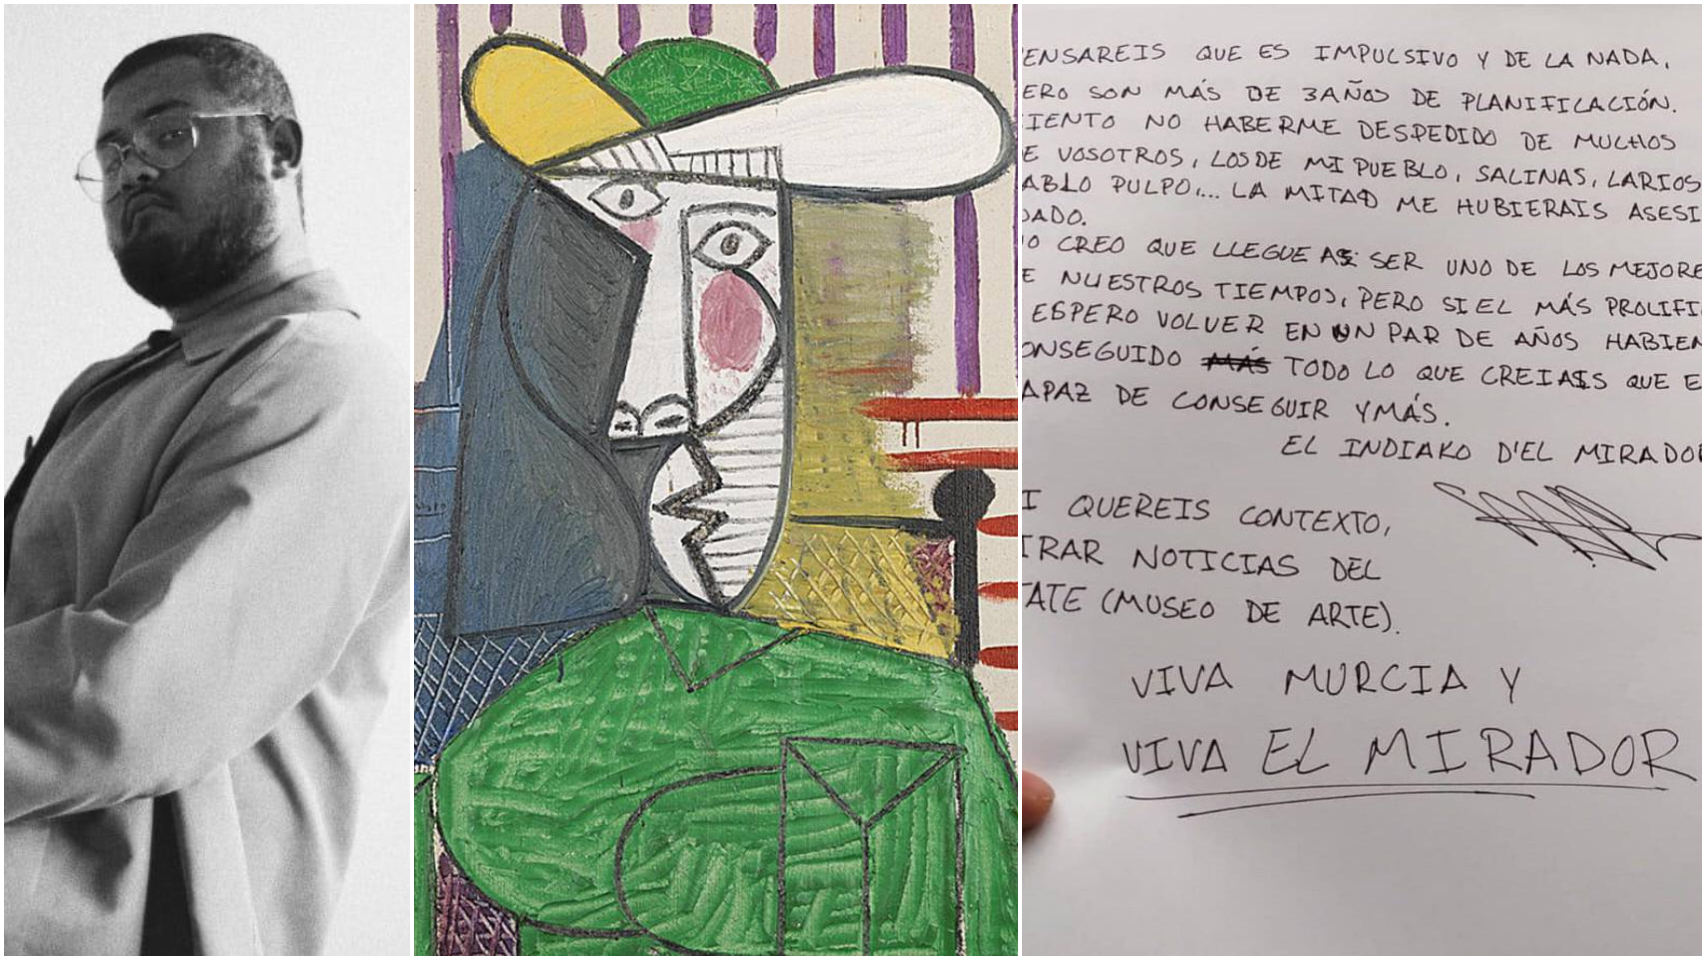 ENSAREIS QUE ES IMPULSIVO Y DE LA NADA,
ERO SON MÁS DE 3 AÑOS DE PLANIFICACIÓN.
IENTO NO HABERME DESPEDIDO DE MUCHOS
E VOSOTROS, LOS DE MI PUEBLO, SALINAS, LARIOS
ABLO PULPO,... LA MITAD ME HUBIERAIS ASESI
DADO.
O CREO QUE LLEGUE A SER UNO DE LOS MEJORE
E NUESTROS TIEMPOS, PERO SI EL MÁS PROLIFI
ESPERO VOLVER EN UN PAR DE AÑOS HABIEN
ONSEGUIDO MÁS TODO LO QUE CREIAIS QUE E
APAZ DE CONSEGUIR Y MÁS.
EL INDIAKO D'EL MIRADOR
I QUEREIS CONTEXTO,
IRAR NOTICIAS DEL
TATE (MUSEO DE ARTE).
VIVA MURCIA Y
VIVA EL MIRADOR